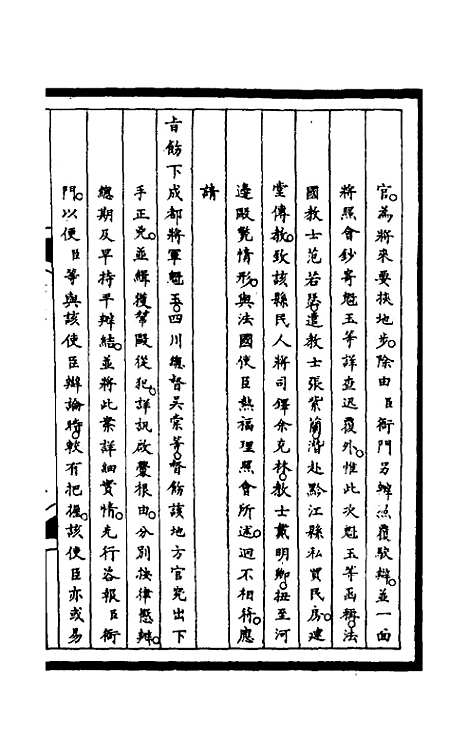 官。為將來要挾地步。除由臣衙門另辦照覆駁辯。並一面
將照會鈔寄魁玉等詳查迅覆外。惟此次魁玉等函稱。法
國教士范若瑟。遣教士張紫蘭。潛赴黔江縣私買民房。建
堂傳教。致該縣民人將司鐸余克林。教士戴明卿。扭至河
邊毆斃情形。與法國使臣熱福理照會所述。迥不相符。應
請
旨飭下成都將軍魁玉。四川總督吳棠等。督飭該地方官究出下
手正兇。並緝獲幫毆從犯。詳訊啟釁根由。分別按律懲辦。
總期及早持平辦結。並將此案詳細實情。先行咨報臣衙
門。以便臣等與該使臣辯論時。較有把握。該使臣亦或易